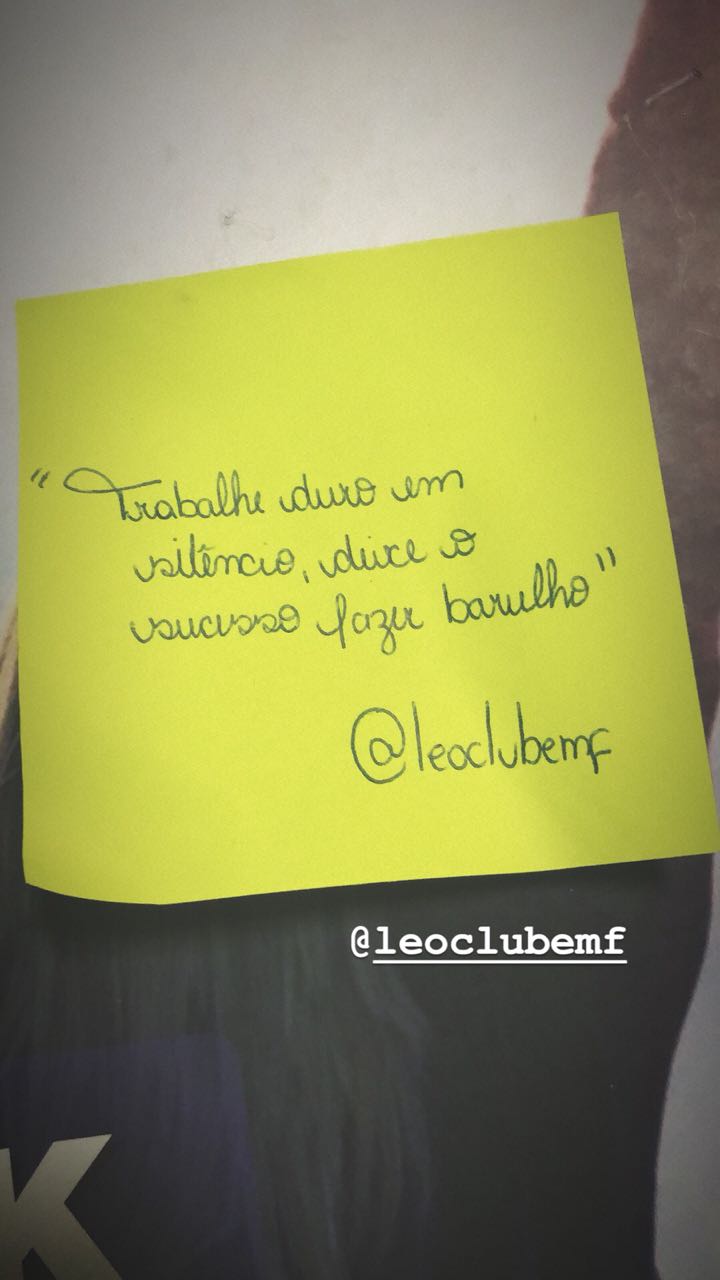 "Trabalhe duro em
silêncio, deixe o
sucesso fazer barulho"
@leoclubemf
@leoclubemf
K